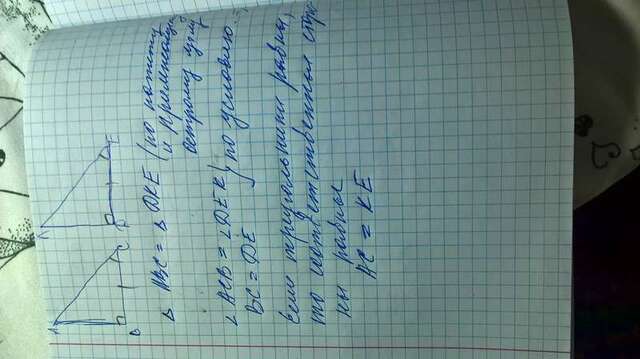 A
B C
K
E
△ ABC = △ DKE (по катету
и прилежащему
острому углу
∠ ACB = ∠DEK
BC = DE } по условию
Если треугольники равны,
то соответственные сторо
ны равны
AC = KE